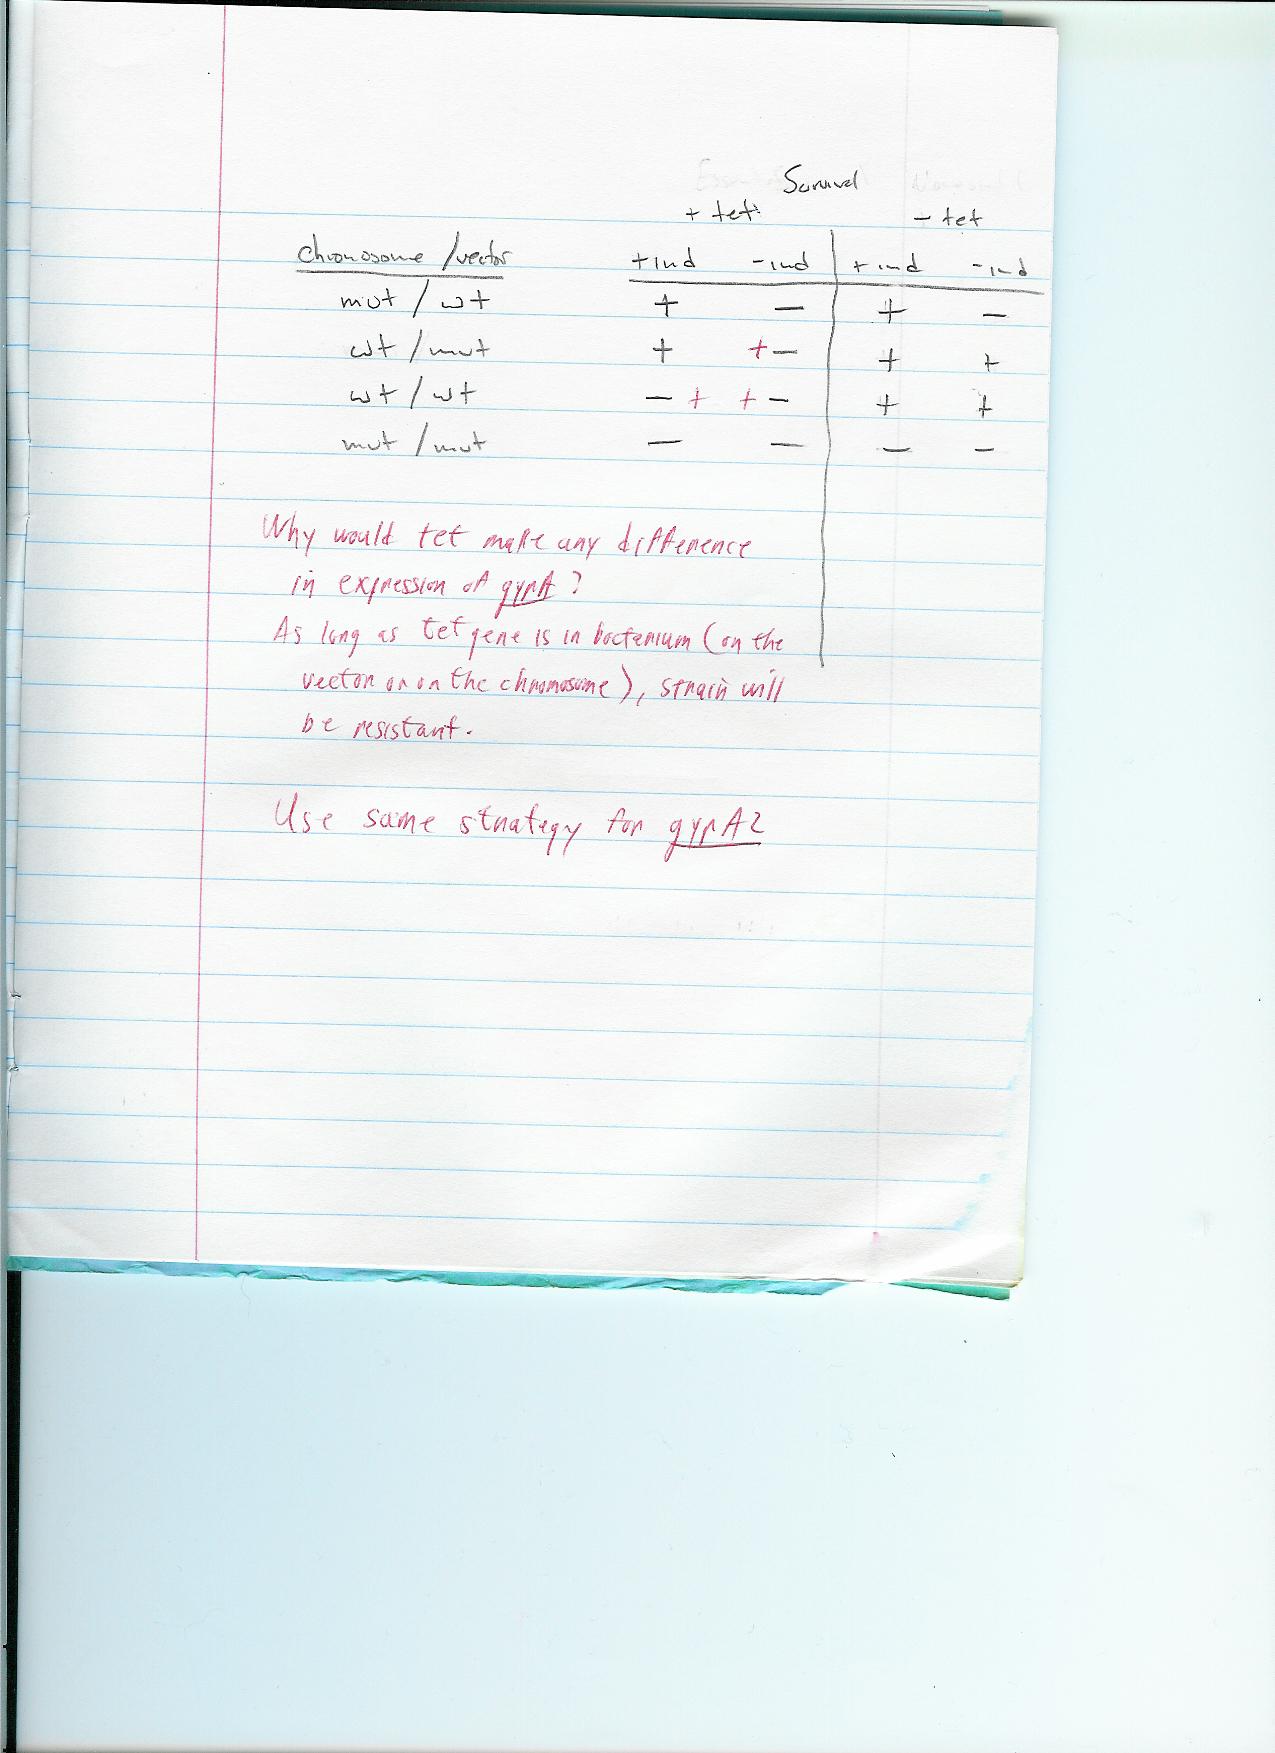 Survival
+ tet - tet
chromosome / vector +ind -ind +ind -ind
mut / wt + - + -
wt / mut + + - + +
wt / wt - + + - + +
mut / mut - - - -
Why would tet make any difference
in expression of gyrA ?
As long as tet gene is in bacterium (on the
vector or on the chromosome), strain will
be resistant.
Use same strategy for gyrA2